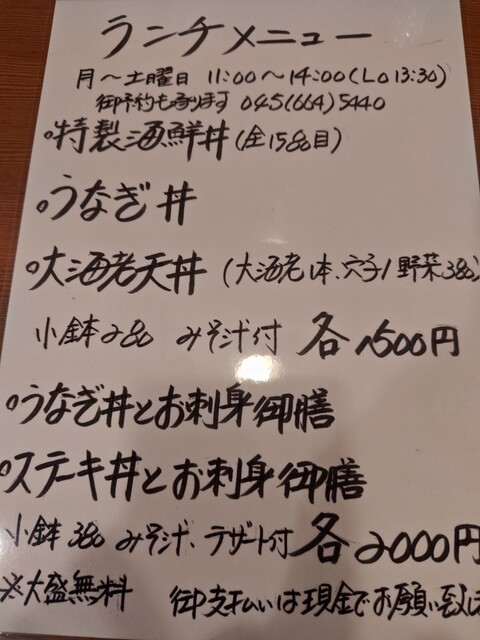 ランチメニュー
月～土曜日 11:00～14:00(LO 13:30)
御予約も承ります 045(664)5440
○特製海鮮丼(全15品目)
○うなぎ丼
○大海老天丼 (大海老1本、穴子1野菜3品)
小鉢2品 みそ汁付 各1500円
○うなぎ丼とお刺身御膳
○ステーキ丼とお刺身御膳
小鉢3品 みそ汁、デザート付 各2000円
※大盛無料 御支払いは現金でお願い致し